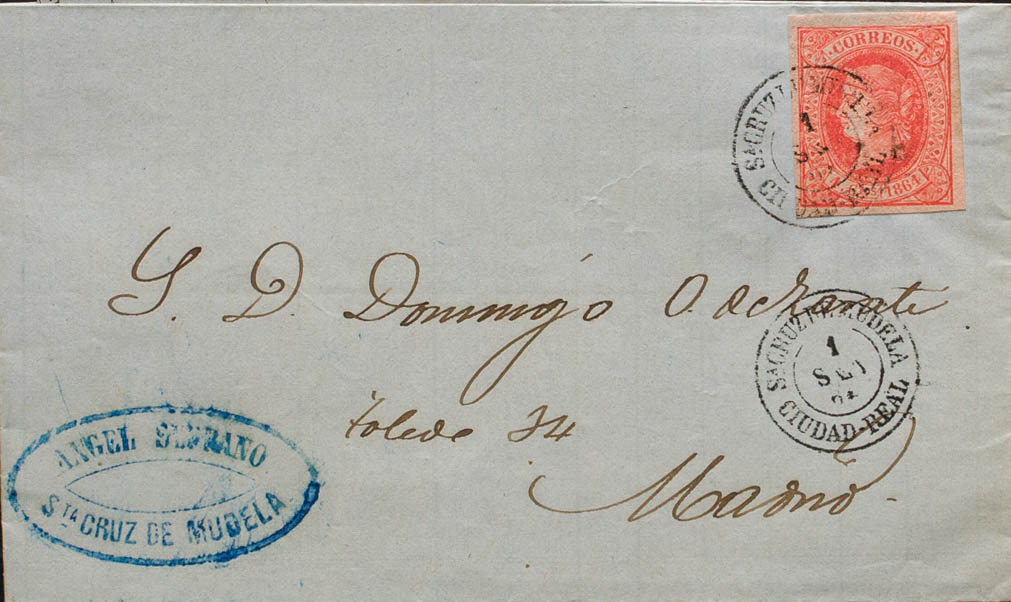 CORREOS
1864
Sª CRUZ
1
CIUDAD-REAL
S. D. Domingo O. de Zarate
Sª CRUZ DE MUDELA
1
SET
64
CIUDAD-REAL
Toledo 34
Madrid
ANGEL SERRANO
STA CRUZ DE MUDELA